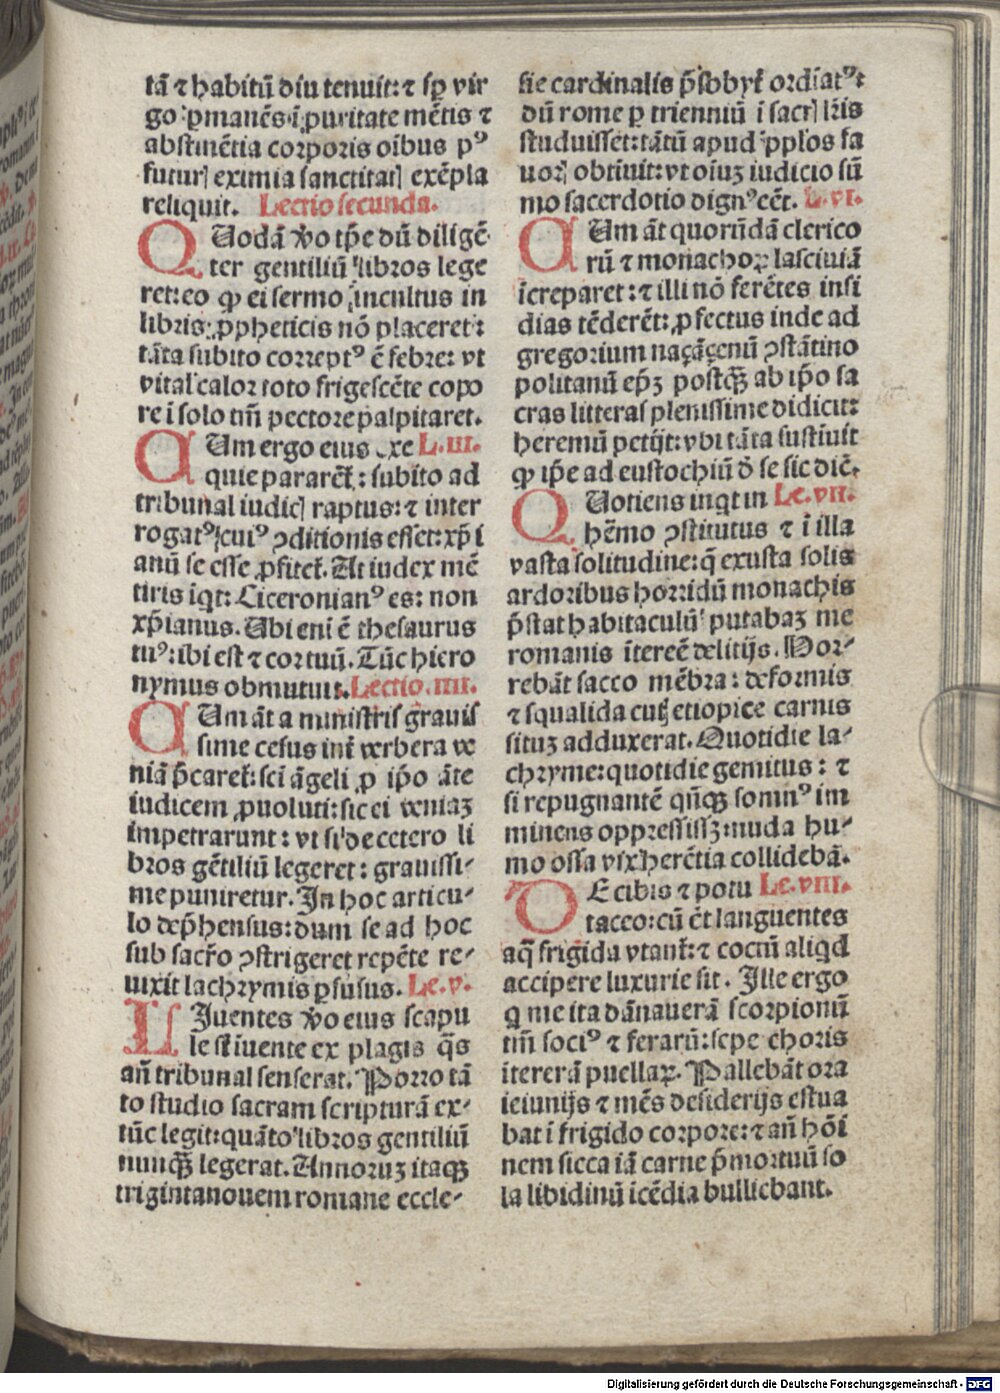 tã ⁊ habitũ diu tenuit: ⁊ sꝑ vir
go ꝓmanẽs ĩ puritate mẽtis ⁊
abstinẽtia corporis oĩbus pꝰ
futurꝭ eximia sanctitatꝭ exẽpla
reliquit. Lectio secunda.
QUodã v̾o tp̃e dũ diligẽ
ter gentiliũ libros lege
ret: eo ꝙ ei sermo incultus in
libris ꝓpheticis nõ placeret:
tãta subito correptꝰ ẽ febre: vt
vital' calor toto frigescẽte coꝛpo
re ĩ solo tm̃ pectore palpitaret.
CUm ergo eius exe L.iii.
quie pararẽt̃: subito ad
tribunal iudicꝭ raptus: ⁊ inter
rogatꝰ cuiꝰ ꝯditionis esset: xp̃i
anũ se esse ꝓfitet̃. At iudex mẽ
tiris iq̃t: Ciceronianꝰ es: non
xp̃ianus. Ubi eni ẽ thesaurus
tuꝰ: ibi est ⁊ cor tuũ. Tũc hiero
nymus obmutuit. Lectio.iiii.
CUm ãt a ministris grauis
sime cesus int̃ verbera ve
niã p̃caret̃: sci ãgeli ꝓ ip̃o ãte
iudicem ꝓuoluti: sic ei veniaꝫ
impetrarunt: vt si de cetero li
bros gẽtiliũ legeret: grauissi-
me puniretur. In hoc articu-
lo dep̃hensus: dum se ad hoc
sub sacr̃o ꝯstrigeret repẽte re-
uixit lachrymis ꝑfusus. Le.v.
LIuentes v̾o eius scapu
le st̃ iuente ex plagis q̃s
añ tribunal senserat. Porro tã
to studio sacram scripturã ex-
tũc legit: quãto libros gentiliũ
nunqꝫ̃ legerat. Annoruꝫ itaqꝫ
triginta nouem romane eccle-
sie cardinalis p̃sbyt̃ ordĩatꝰ:
dũ rome ꝑ trienniũ ĩ sacrꝭ lr̃is
studuisset: tãtũ apud pp̃los fa
uorꝭ obtĩuit: vt oĩuꝫ iudicio sũ
mo sacerdotio dignꝰ cẽt. L.vi.
CUm ãt quorũdã clerico
rũ ⁊ monachoꝝ lasciuiã
ĩcreparet: ⁊ illi nõ ferẽtes insi
dias tẽderẽt: ꝓfectus inde ad
gregorium naçãçenũ ꝯstãtino
politanũ ep̃ꝫ postqꝫ̃ ab ip̃o sa
cras litteras plenissime didicit:
heremũ petijt: vbi tãta sustĩuit
ꝙ ip̃e ad eustochiũ d̾ se sic dic̃.
QUotiens inqt in Le.vii.
hẽmo ꝯstitutus ⁊ ĩ illa
vasta solitudine: q̃ exusta solis
ardoribus horridũ monachis
p̃stat habitaculũ putabaꝫ me
romanis ĩtereẽ delitijs. Hor-
rebãt sacco mẽbra: deformis
⁊ squalida cutꝭ etiopice carnis
situꝫ adduxerat. Quotidie la-
chryme: quotidie gemitus: ⁊
si repugnantẽ qñqꝫ somnꝰ im
minens oppressissꝫ: nuda hu-
mo ossa vix herẽtia collidebã.
DE cibis ⁊ potu Le.viii.
taceo: cũ ẽt languentes
aq̃ frigida vtant̃: ⁊ coctũ aliqd
accipere luxurie sit. Ille ergo
q me ita dãnauerã scorpionũ
tm̃ sociꝰ ⁊ ferarũ: sepe choris
itererã puellaꝝ. Pallebãt ora
ieiunijs ⁊ mẽs desiderijs estua
bat ĩ frigido corpore: ⁊ añ hõĩ
nem sicca iã carne p̃mortuũ so
la libidinũ ĩcẽdia bulliebant.
Digitalisierung gefördert durch die Deutsche Forschungsgemeinschaft - DFG